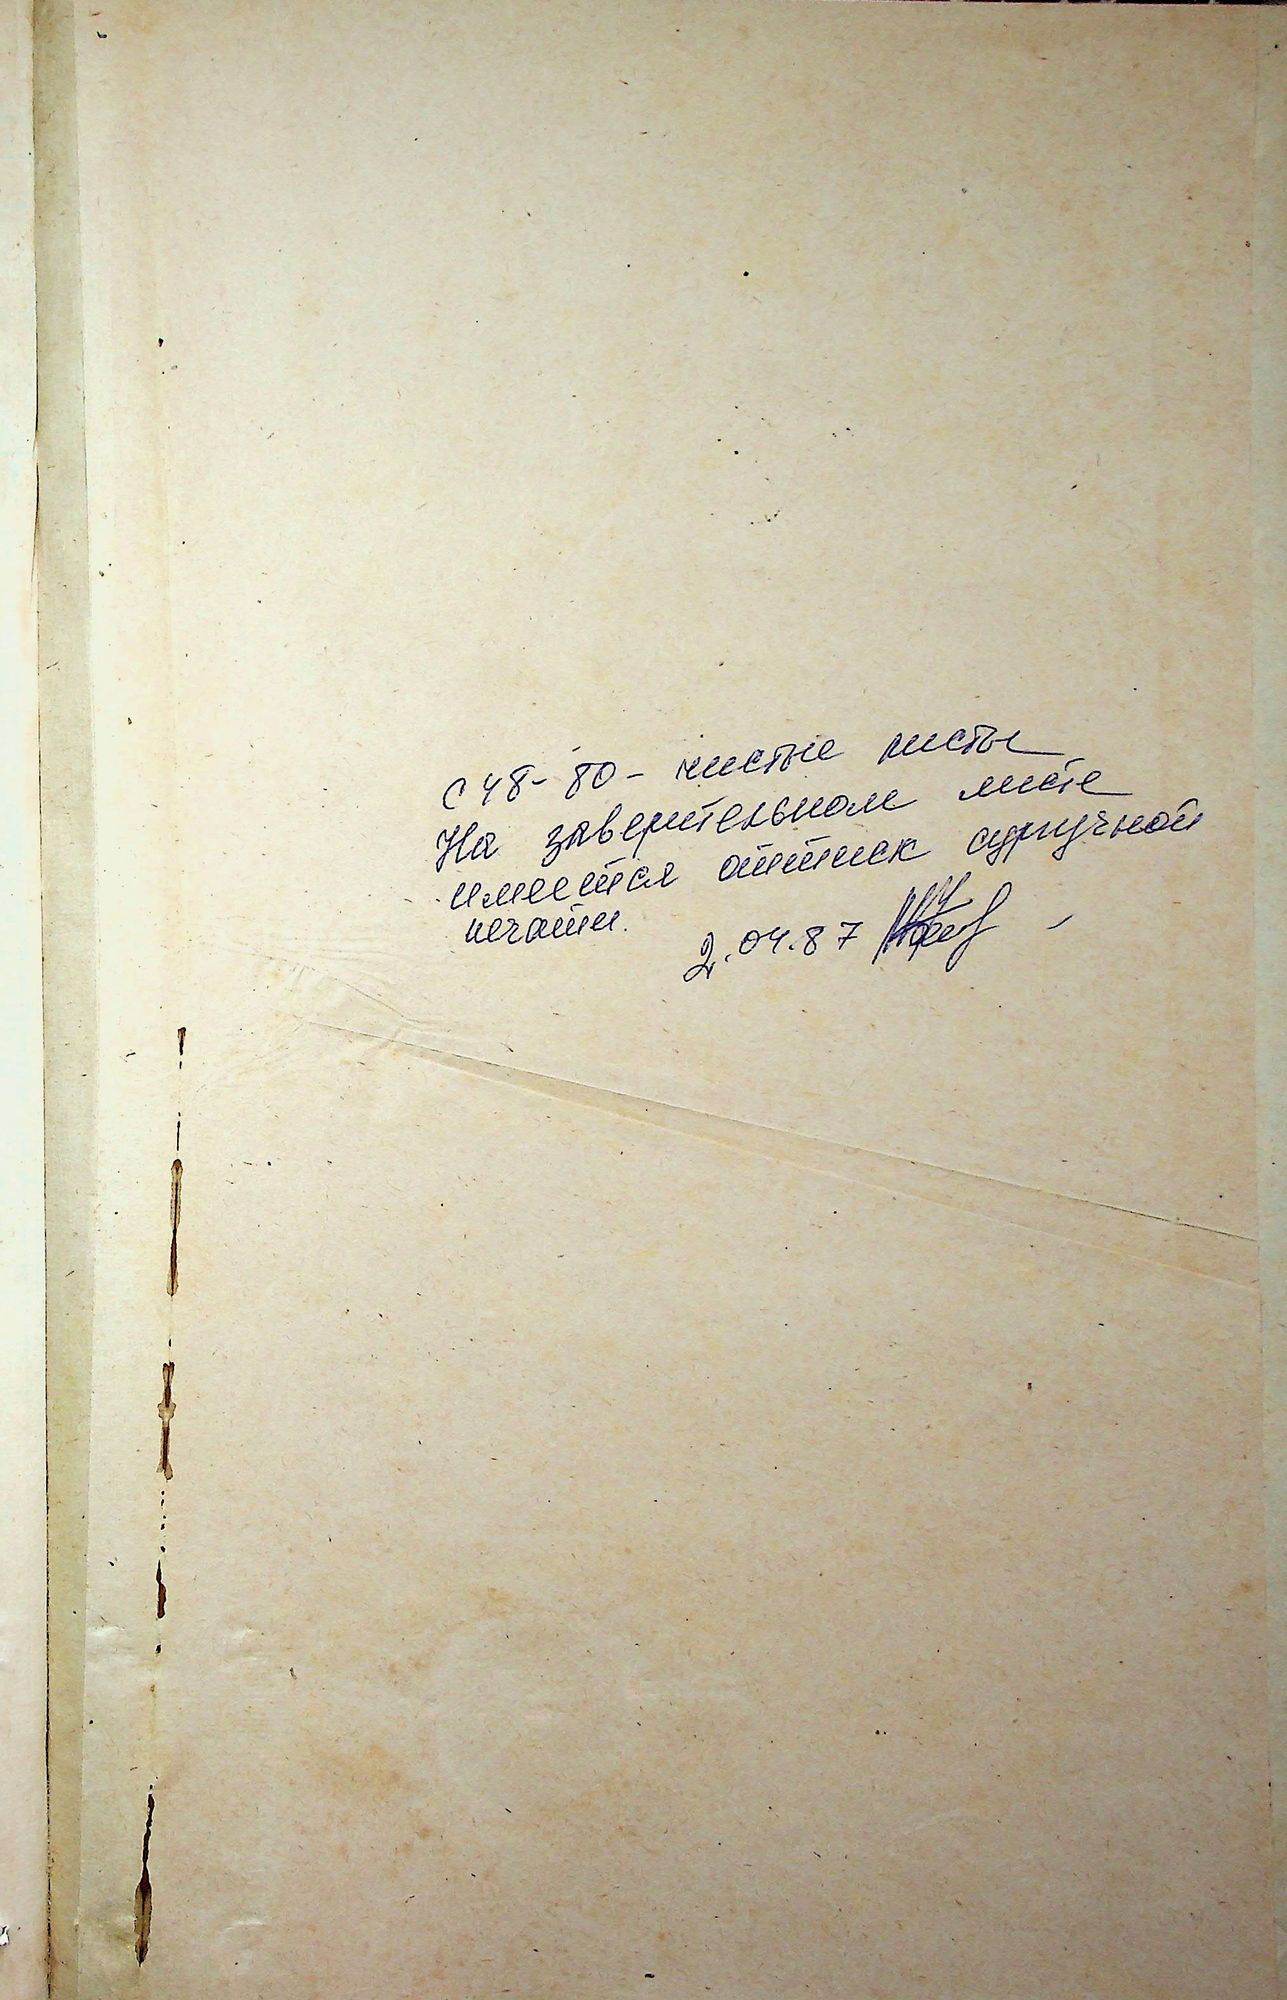 с 48-80 - чистые листы
На заверительном листе
имеется оттиск сургучной
печати.
2.04.87